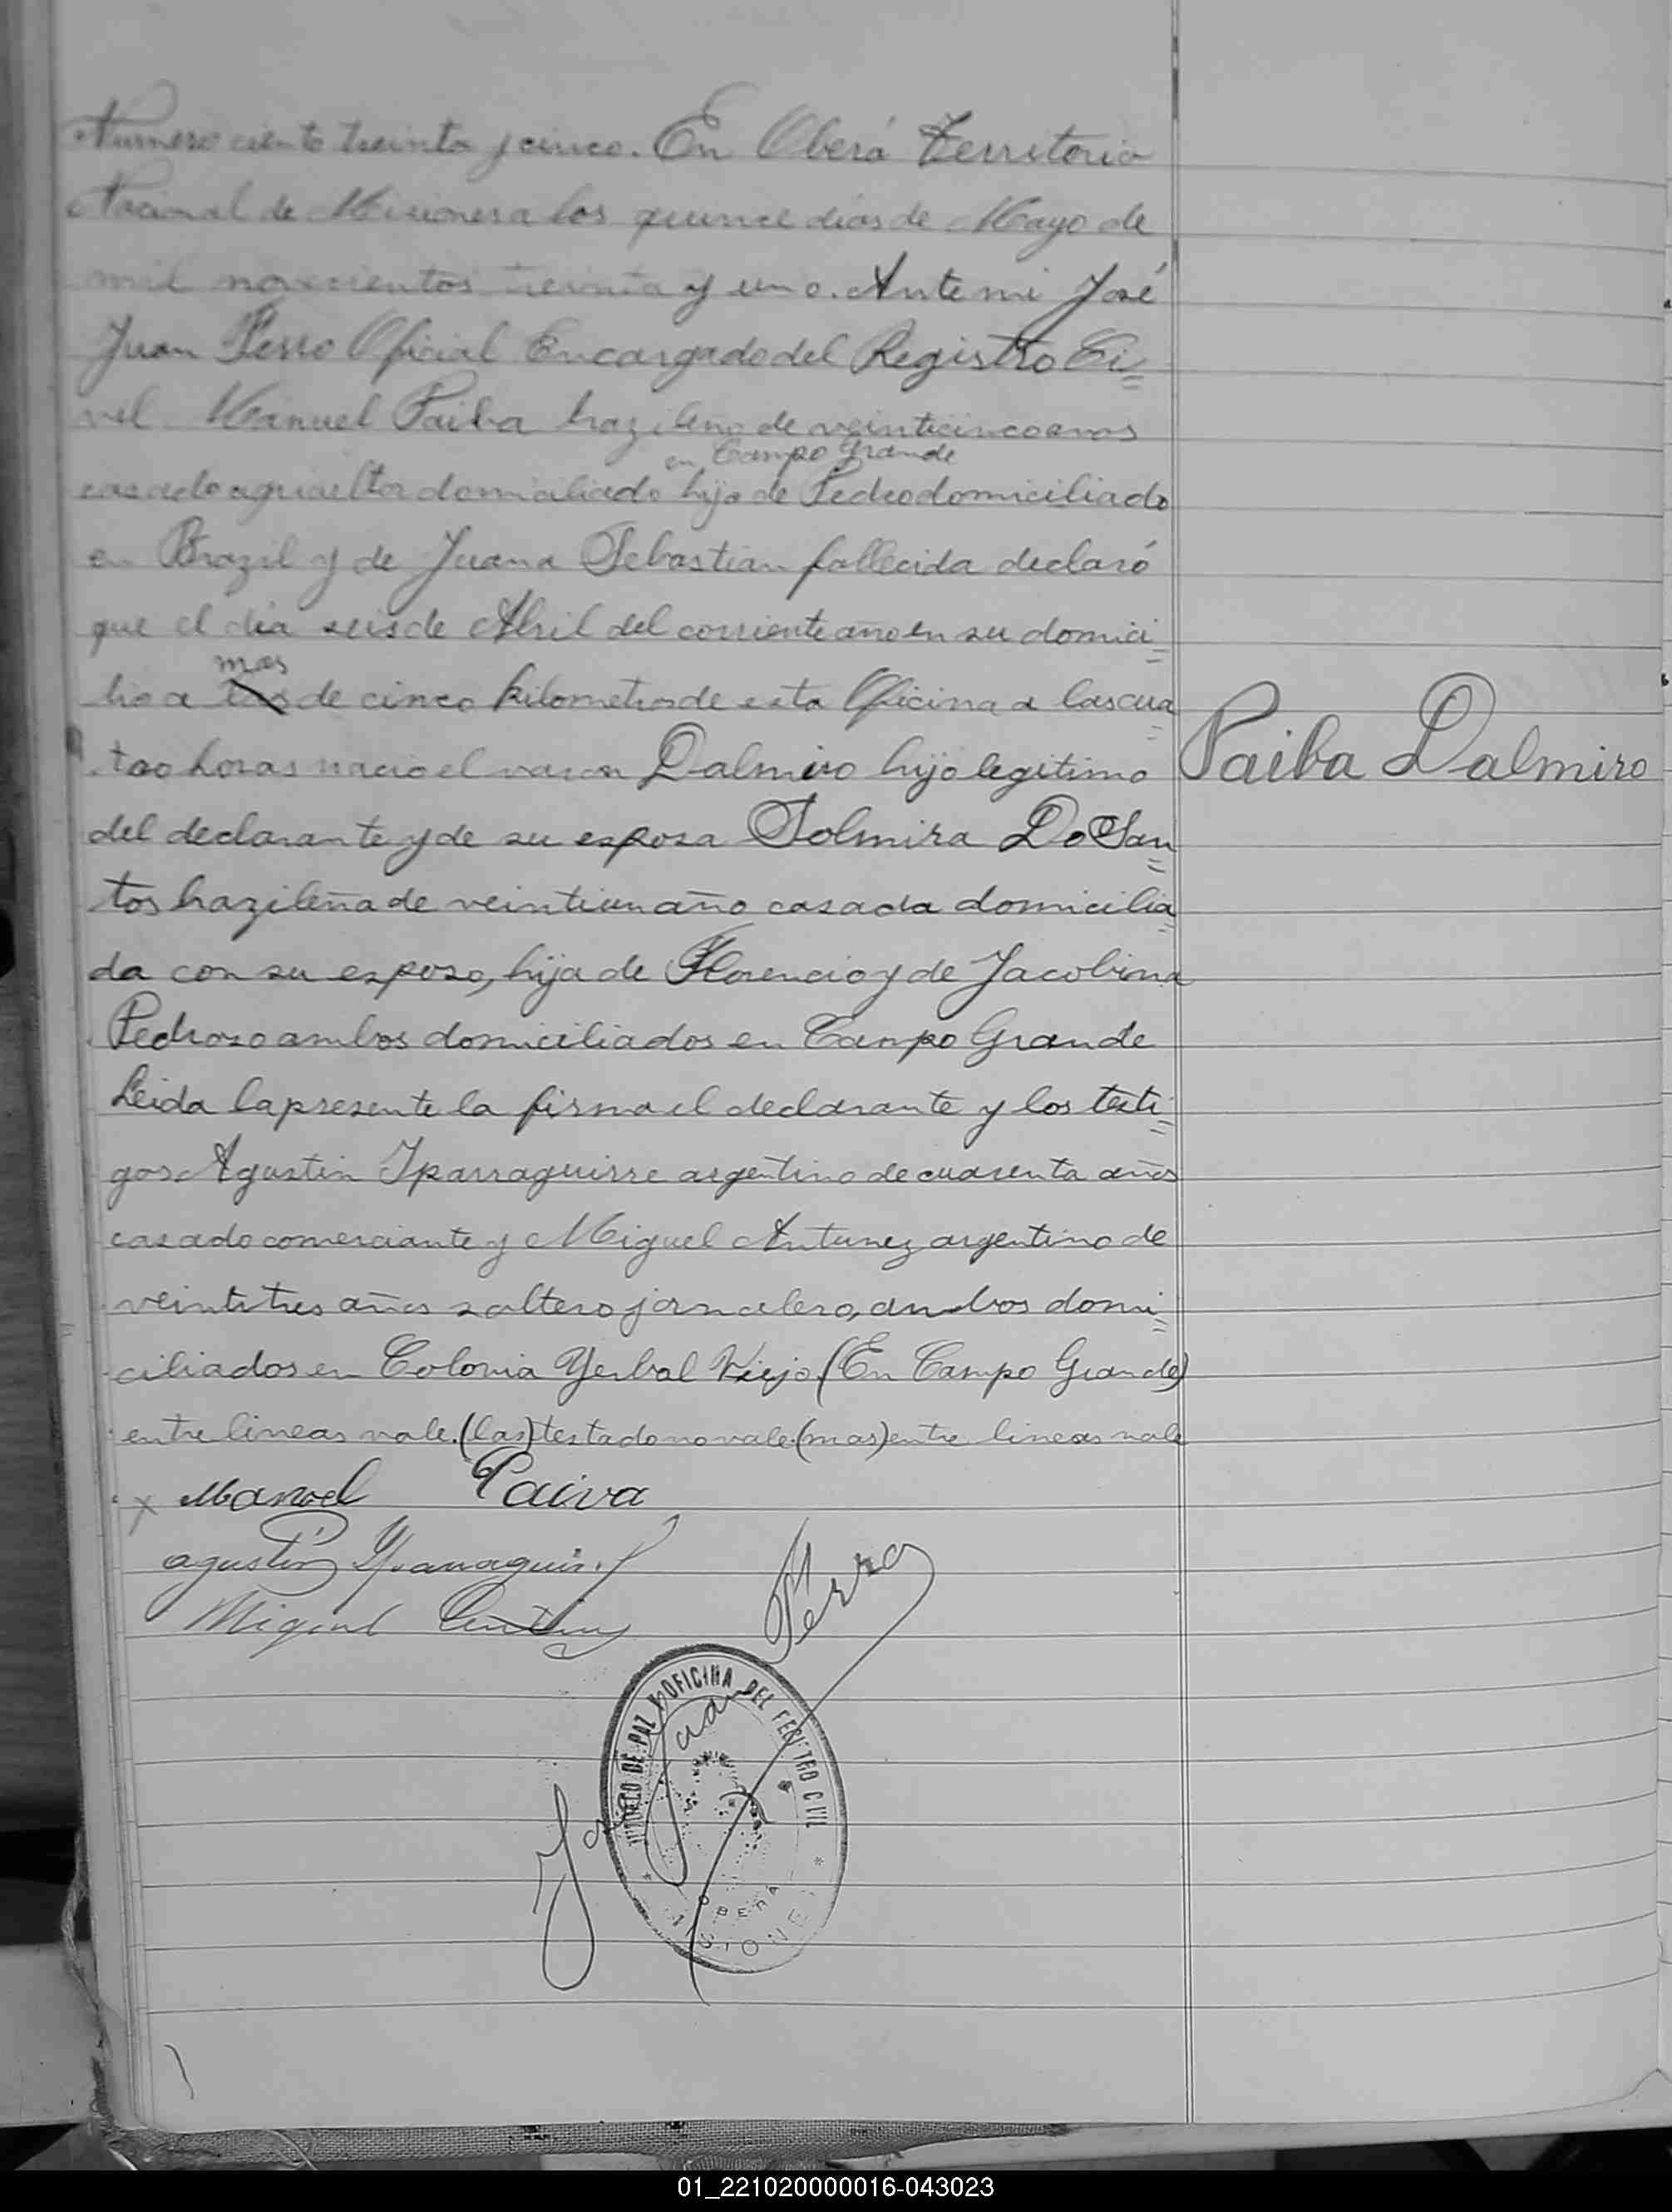 Numero ciento treinta y cinco. En Oberá Territorio
Nacional de Misiones a los quince dias de Mayo de
mil novecientos treinta y uno. Ante mi José
Juan Perro Oficial Encargado del Registro Ci=
vil Manuel Paiba brazileño de veinticinco años
en Campo Grande
casado agricultor domiciliado hijo de Pedro domiciliado
en Brazil y de Juana Sebastian fallecida declaró
que el dia seis de Abril del corriente año en su domici=
mas
lio a las de cinco kilometros de esta Oficina a las cua=
tro horas nacio el varon Dalmiro hijo legitimo
Paiba Dalmiro
del declarante y de su esposa Solmira Do San=
tos brazileña de veintiun año casada domicilia=
da con su esposo, hija de Florencio y de Jacobina
Pedrozo ambos domiciliados en Campo Grande
Leida la presente la firma el declarante y los testi=
gos Agustin Iparraguirre argentino de cuarenta años
casado comerciante y Miguel Antunez argentino de
veintitres años soltero jornalero, ambos domi=
ciliados en Colonia Yerbal Viejo (En Campo Grande)
entre lineas vale. (las) testado no vale. (mas) entre lineas vale
x Manoel Paiva
agustin
Miguel
José Juan Perro
JUZGADO DE PAZ Y OFICINA DEL REGISTRO CIVIL
OBERA
MISIONES
01_221020000016-043023